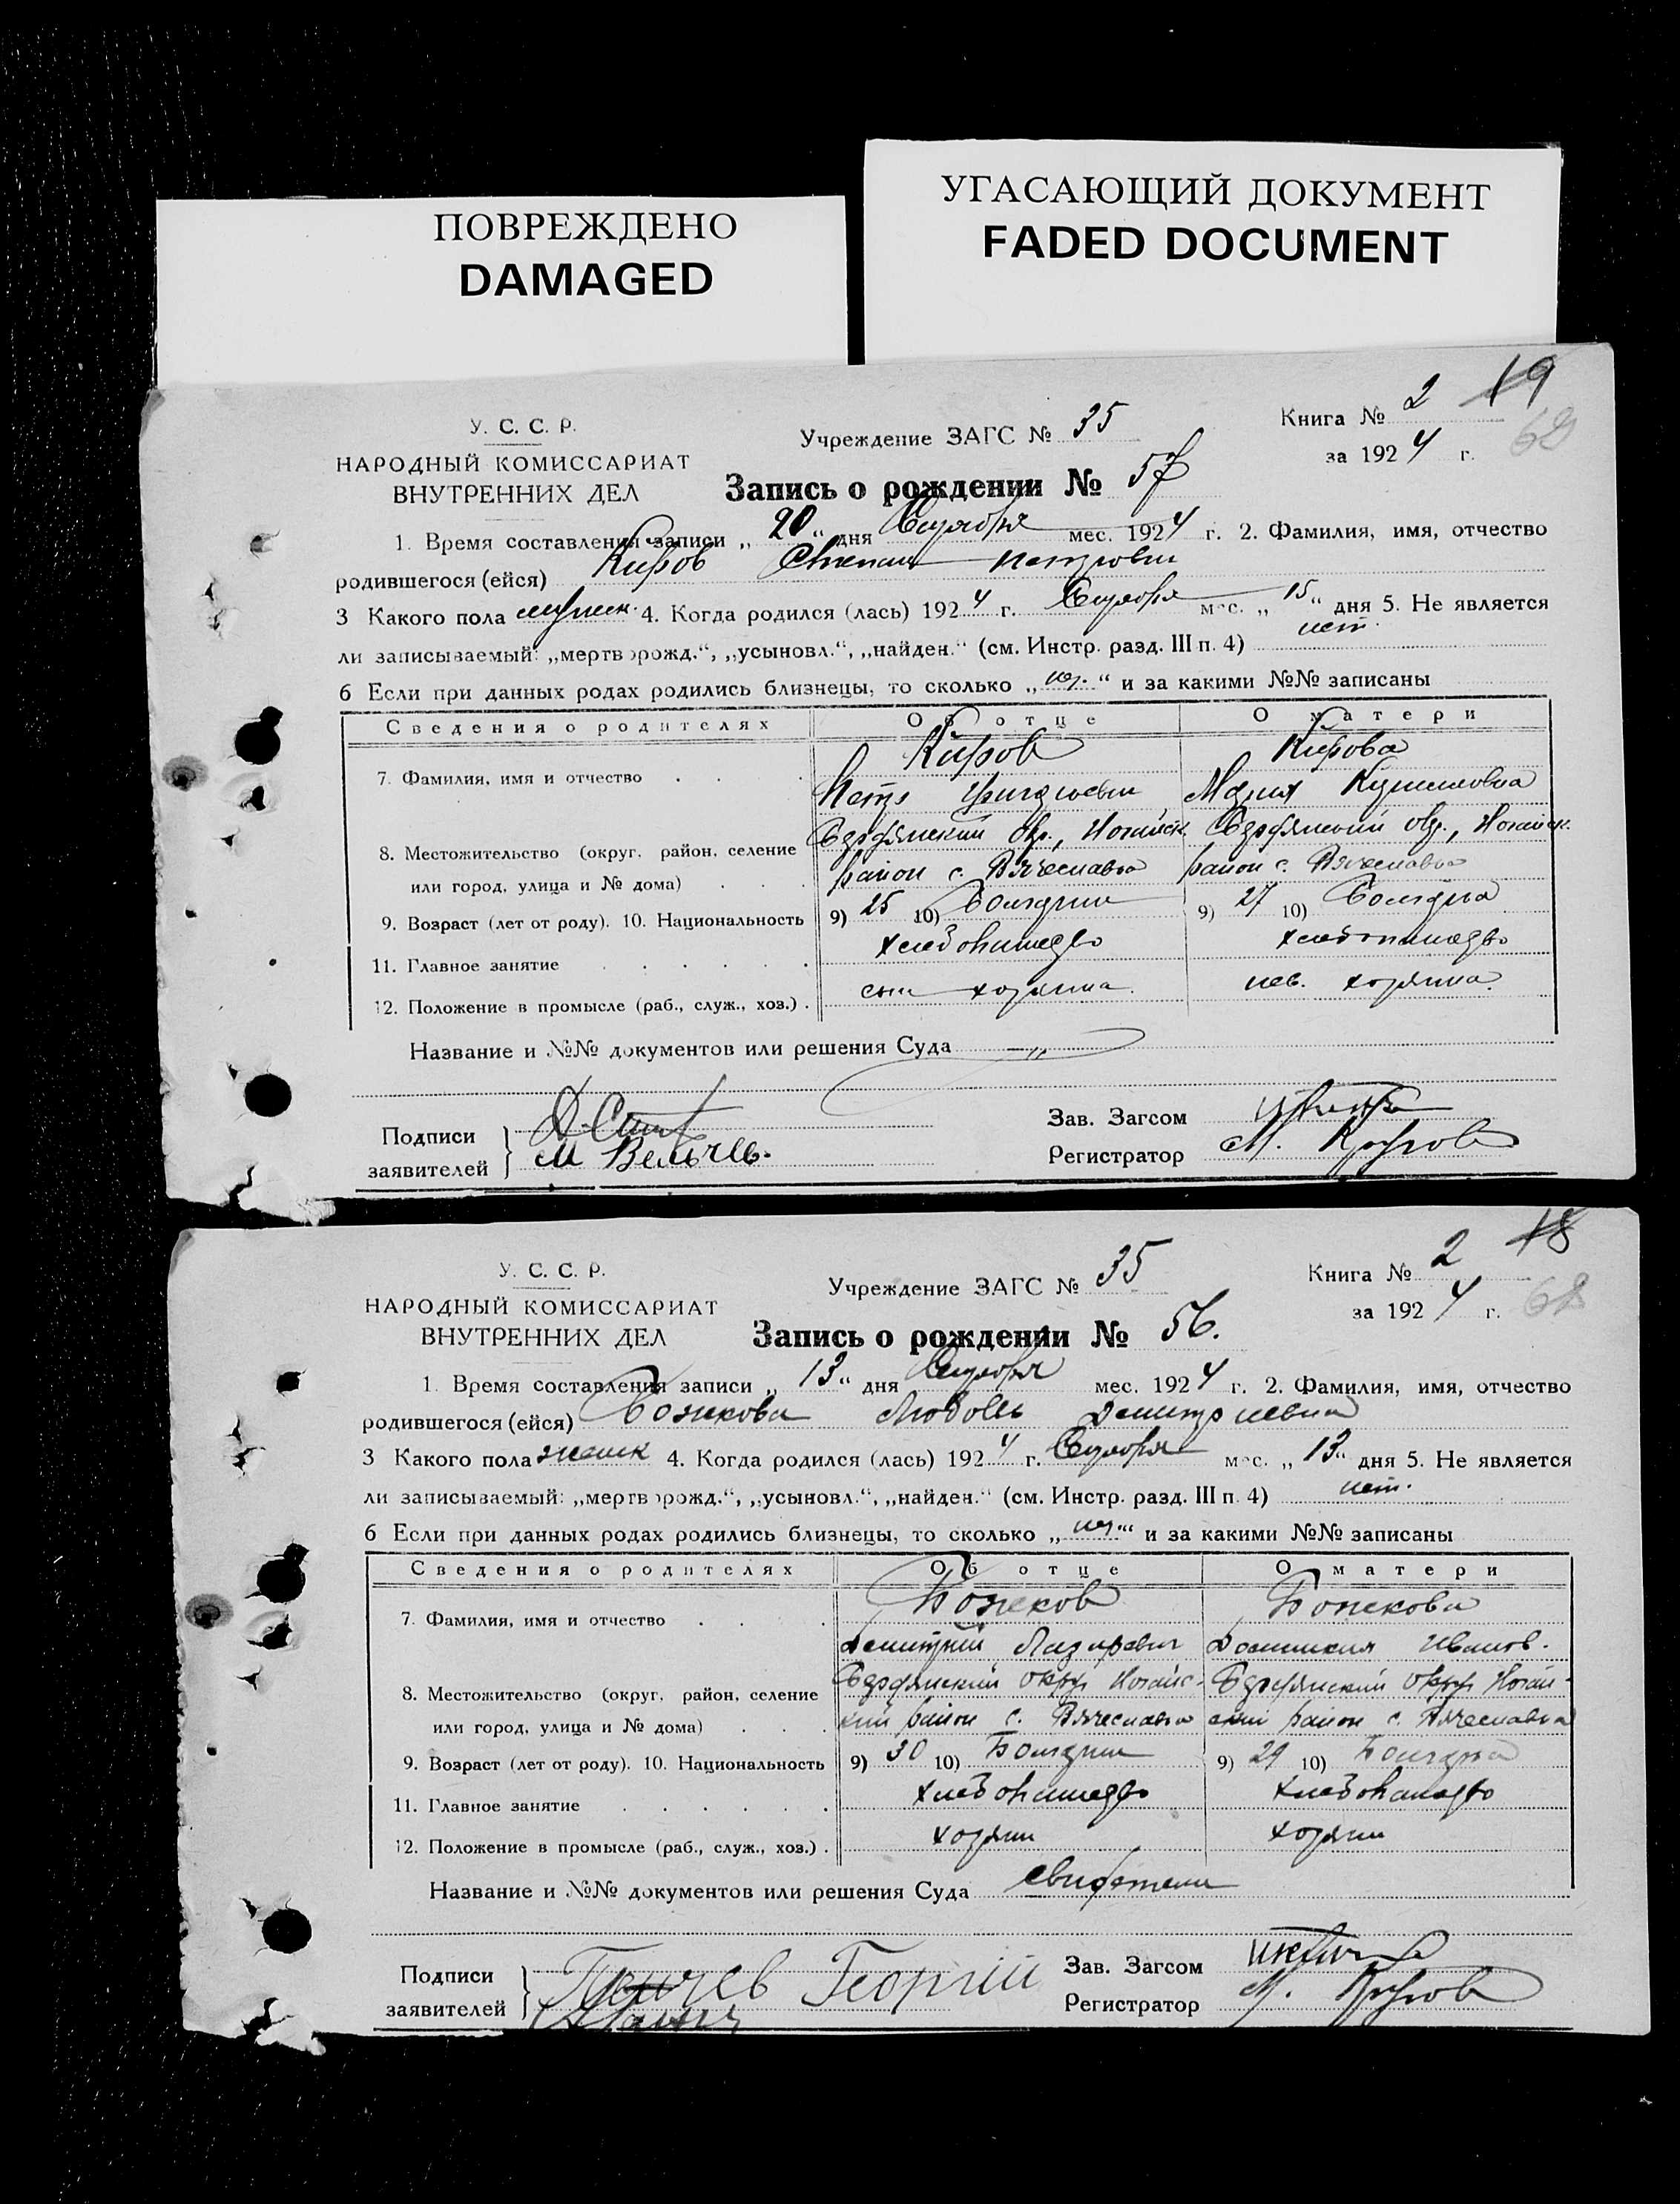 ПОВРЕЖДЕНО
DAMAGED
УГАСАЮЩИЙ ДОКУМЕНТ
FADED DOCUMENT
У. С. С. Р.
НАРОДНЫЙ КОМИССАРИАТ
ВНУТРЕННИХ ДЕЛ
Учреждение ЗАГС № 35
Книга № 2 19
за 1924 г. 62
Запись о рождении № 57
1. Время составления записи „20“ дня Сентября мес. 1924 г. 2. Фамилия, имя, отчество
родившегося (ейся) Киров Степан Петрович
3 Какого пола мужск. 4. Когда родился (лась) 1924 г. Сентября мес. „15“ дня 5. Не является
ли записываемый: „мертворожд.“, „усыновл.“, „найден.“ (см. Инстр. разд. III п. 4) нет.
6 Если при данных родах родились близнецы, то сколько „нет.“ и за какими №№ записаны
Сведения о родителях Об отце О матери
7. Фамилия, имя и отчество Киров Кирова
Петр Мария
8. Местожительство (округ, район, селение Бердянский окр., Ногайск. Бердянский окр., Ногайск.
или город, улица и № дома) район с. Вячеславка район с. Вячеславка
9. Возраст (лет от роду). 10. Национальность 9) 25 10) Болгарин 9) 27 10) Болгарка
11. Главное занятие хлебопашество хлебопашество
12. Положение в промысле (раб., служ., хоз.) сын хозяина. нев. хозяина.
Название и №№ документов или решения Суда —„
Подписи
заявителей М Вельчев.
Зав. Загсом
Регистратор М.
У. С. С. Р.
НАРОДНЫЙ КОМИССАРИАТ
ВНУТРЕННИХ ДЕЛ
Учреждение ЗАГС № 35
Книга № 2 18
за 1924 г. 62
Запись о рождении № 56.
1. Время составления записи „13“ дня Сентября мес. 1924 г. 2. Фамилия, имя, отчество
родившегося (ейся) Божкова Любовь Дмитриевна
3 Какого пола женск 4. Когда родился (лась) 1924 г. Сентября мес. „13“ дня 5. Не является
ли записываемый: „мертворожд.“, „усыновл.“, „найден.“ (см. Инстр. разд. III п. 4) нет.
6 Если при данных родах родились близнецы, то сколько „нет“ и за какими №№ записаны
Сведения о родителях Об отце О матери
7. Фамилия, имя и отчество Божков Божкова
Дмитрий Лазаревич Домникия Иванов.
8. Местожительство (округ, район, селение Бердянский округ Ногайс- Бердянский округ Ногай-
или город, улица и № дома) кий район с. Вячеславка ский район с. Вячеславка
9. Возраст (лет от роду). 10. Национальность 9) 30 10) Болгарин 9) 29 10) Болгарка
11. Главное занятие хлебопашество хлебопашество
12. Положение в промысле (раб., служ., хоз.) хозяин хозяин
Название и №№ документов или решения Суда свидетели
Подписи
заявителей Георгий
Зав. Загсом
Регистратор М.